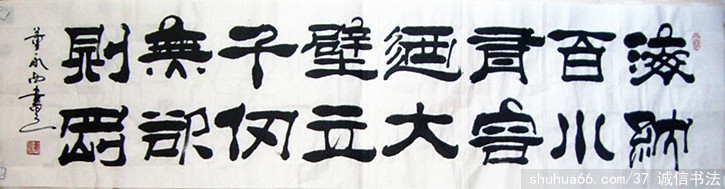 海納
百川
有容
迺大
壁立
千仞
無欲
則剛
董永西書
shuhua66.com/37 诚信书法